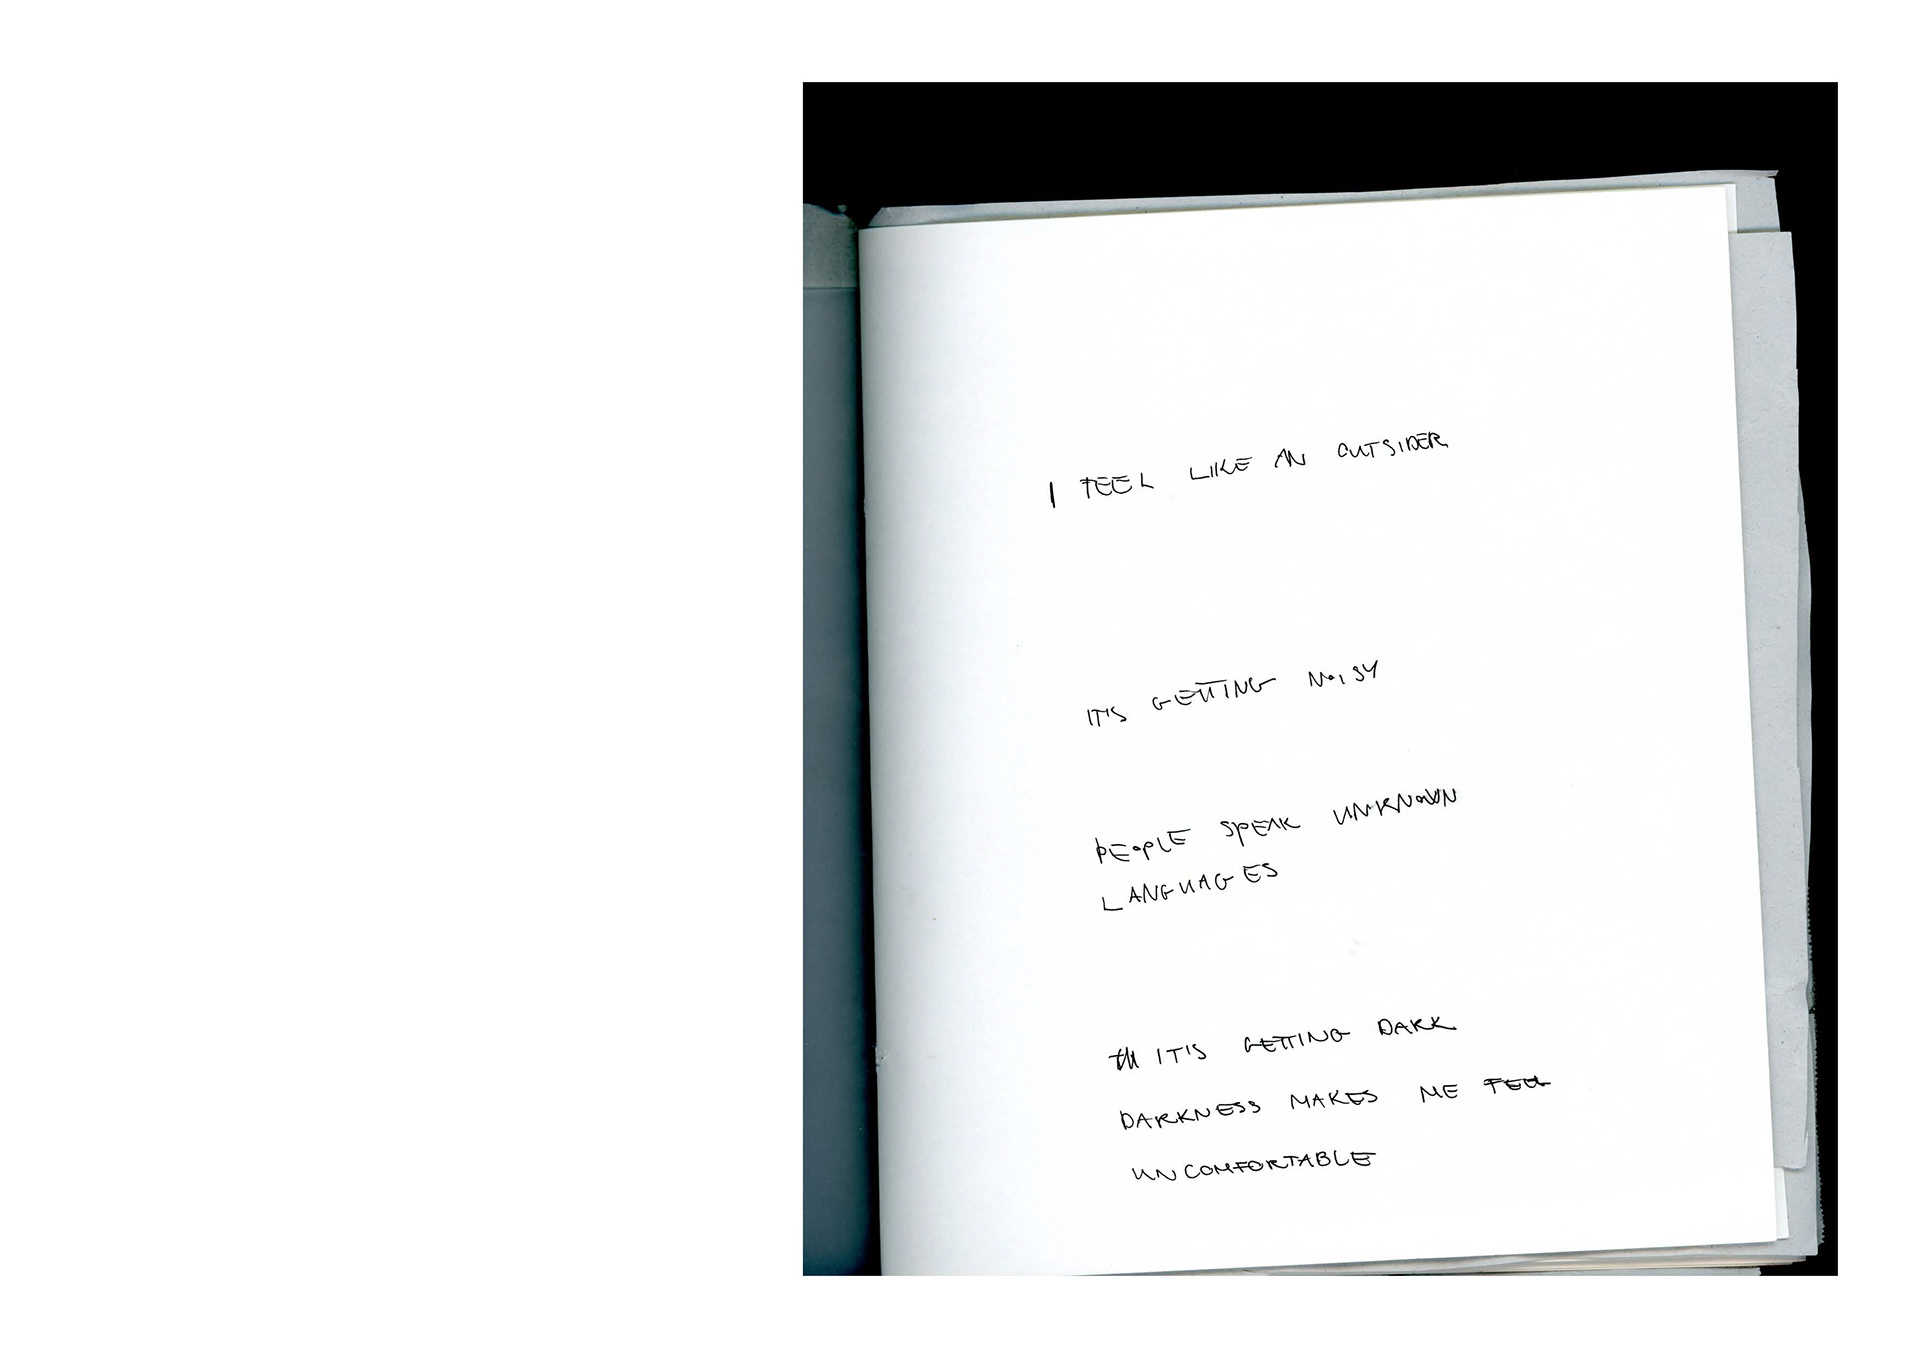 I FEEL LIKE AN OUTSIDER
IT'S GETTING NOISY
PEOPLE SPEAK UNKNOWN
LANGUAGES
IT'S GETTING DARK
DARKNESS MAKES ME FEEL
UNCOMFORTABLE